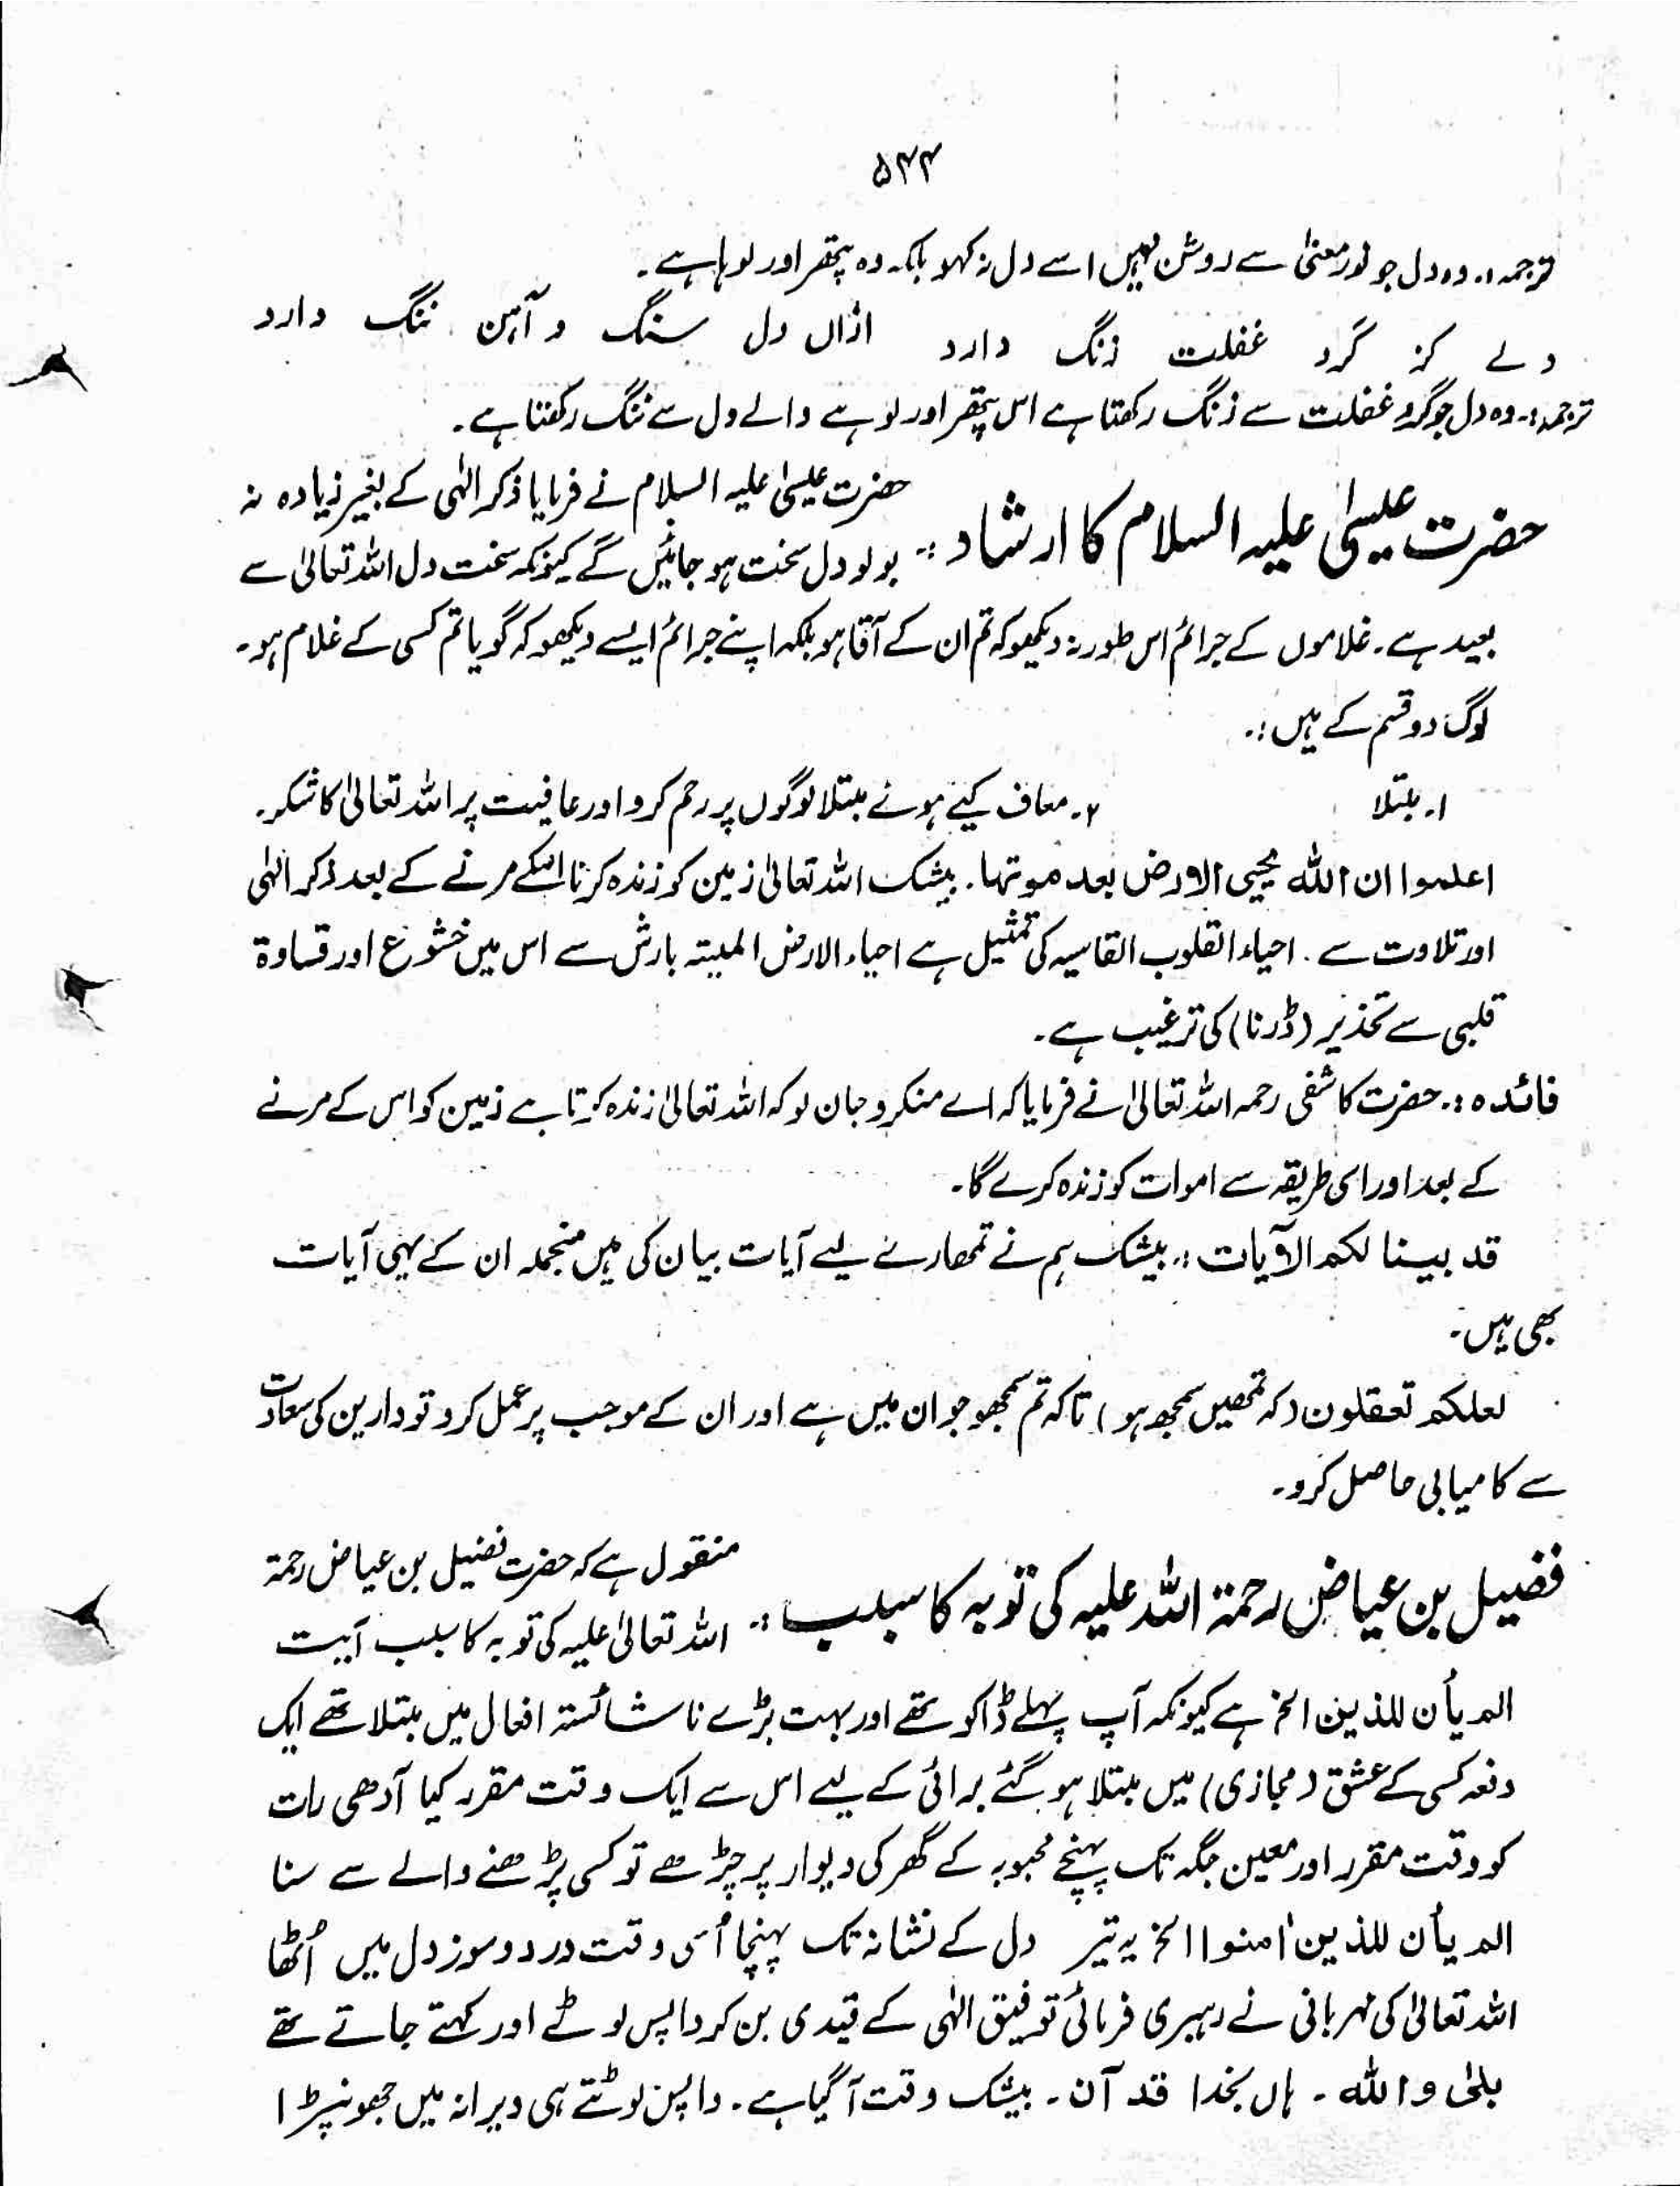 ۵۴۴
ترجمہ:۔ وہ دل جو نور معنیٰ سے روشن نہیں اسے دل نہ کہو بلکہ وہ پتھر اور لوہا ہے۔
دلے کز گرد غفلت زنگ دارد ازاں دل سنگ و آہن ننگ دارد
ترجمہ:۔ وہ دل جو گرد غفلت سے زنگ رکھتا ہے اس پتھر اور لوہے والے دل سے ننگ رکھتا ہے۔
حضرت عیسیٰ علیہ السلام کا ارشاد :۔ حضرت عیسیٰ علیہ السلام نے فرمایا ذکر الٰہی کے بغیر زیادہ نہ
بولو دل سخت ہو جائیں گے کیونکہ سخت دل اللہ تعالیٰ سے
بعید ہے۔ غلاموں کے جرائم اس طور نہ دیکھو کہ تم ان کے آقا ہو بلکہ اپنے جرائم ایسے دیکھو کہ گویا تم کسی کے غلام ہو۔
لوگ دو قسم کے ہیں :۔
۱۔ مبتلا ۲۔ معاف کیے ہوئے مبتلا لوگوں پر رحم کرو اور عافیت پر اللہ تعالیٰ کا شکر۔
اعلموا ان اللہ یحیی الارض بعد موتہا۔ بیشک اللہ تعالیٰ زمین کو زندہ کرتا اسکے مرنے کے بعد ذکر الٰہی
اور تلاوت سے۔ احیاء القلوب القاسیہ کی تمثیل ہے احیاء الارض المیتہ بارش سے اس میں خشوع اور قساوۃ
قلبی سے تحذیر (ڈرنا) کی ترغیب ہے۔
فائدہ :۔ حضرت کاشفی رحمہ اللہ تعالیٰ نے فرمایا کہ اے منکرو جان لو کہ اللہ تعالیٰ زندہ کرتا ہے زمین کو اس کے مرنے
کے بعد اور اسی طریقہ سے اموات کو زندہ کرے گا۔
قد بینا لکم الآیات :۔ بیشک ہم نے تمھارے لیے آیات بیان کی ہیں منجملہ ان کے یہی آیات
بھی ہیں۔
لعلکم تعقلون (کہ تمھیں سمجھ ہو) تاکہ تم سمجھو جو ان میں ہے اور ان کے موجب پر عمل کرو تو دارین کی سعادت
سے کامیابی حاصل کرو۔
فضیل بن عیاض رحمۃ اللہ علیہ کی توبہ کا سبب :۔ منقول ہے کہ حضرت فضیل بن عیاض رحمۃ
اللہ تعالیٰ علیہ کی توبہ کا سبب آیت
الم یأن للذین الخ ہے کیونکہ آپ پہلے ڈاکو تھے اور بہت بڑے ناشائستہ افعال میں مبتلا تھے ایک
دفعہ کسی کے عشق (مجازی) میں مبتلا ہو گئے برائی کے لیے اس سے ایک وقت مقرر کیا آدھی رات
کو وقت مقرر اور معین جگہ تک پہنچے محبوبہ کے گھر کی دیوار پر چڑھے تو کسی پڑھنے والے سے سنا
الم یأن للذین اٰمنوا الخ یہ تیر دل کے نشانہ تک پہنچا اُسی وقت درد و سوز دل میں اُٹھا
اللہ تعالیٰ کی مہربانی نے رہبری فرمائی توفیق الٰہی کے قیدی بن کر واپس لوٹے اور کہتے جاتے تھے
بلیٰ واللہ۔ ہاں بخدا قد آن۔ بیشک وقت آ گیا ہے۔ واپس لوٹتے ہی ویرانہ میں جھونپڑا